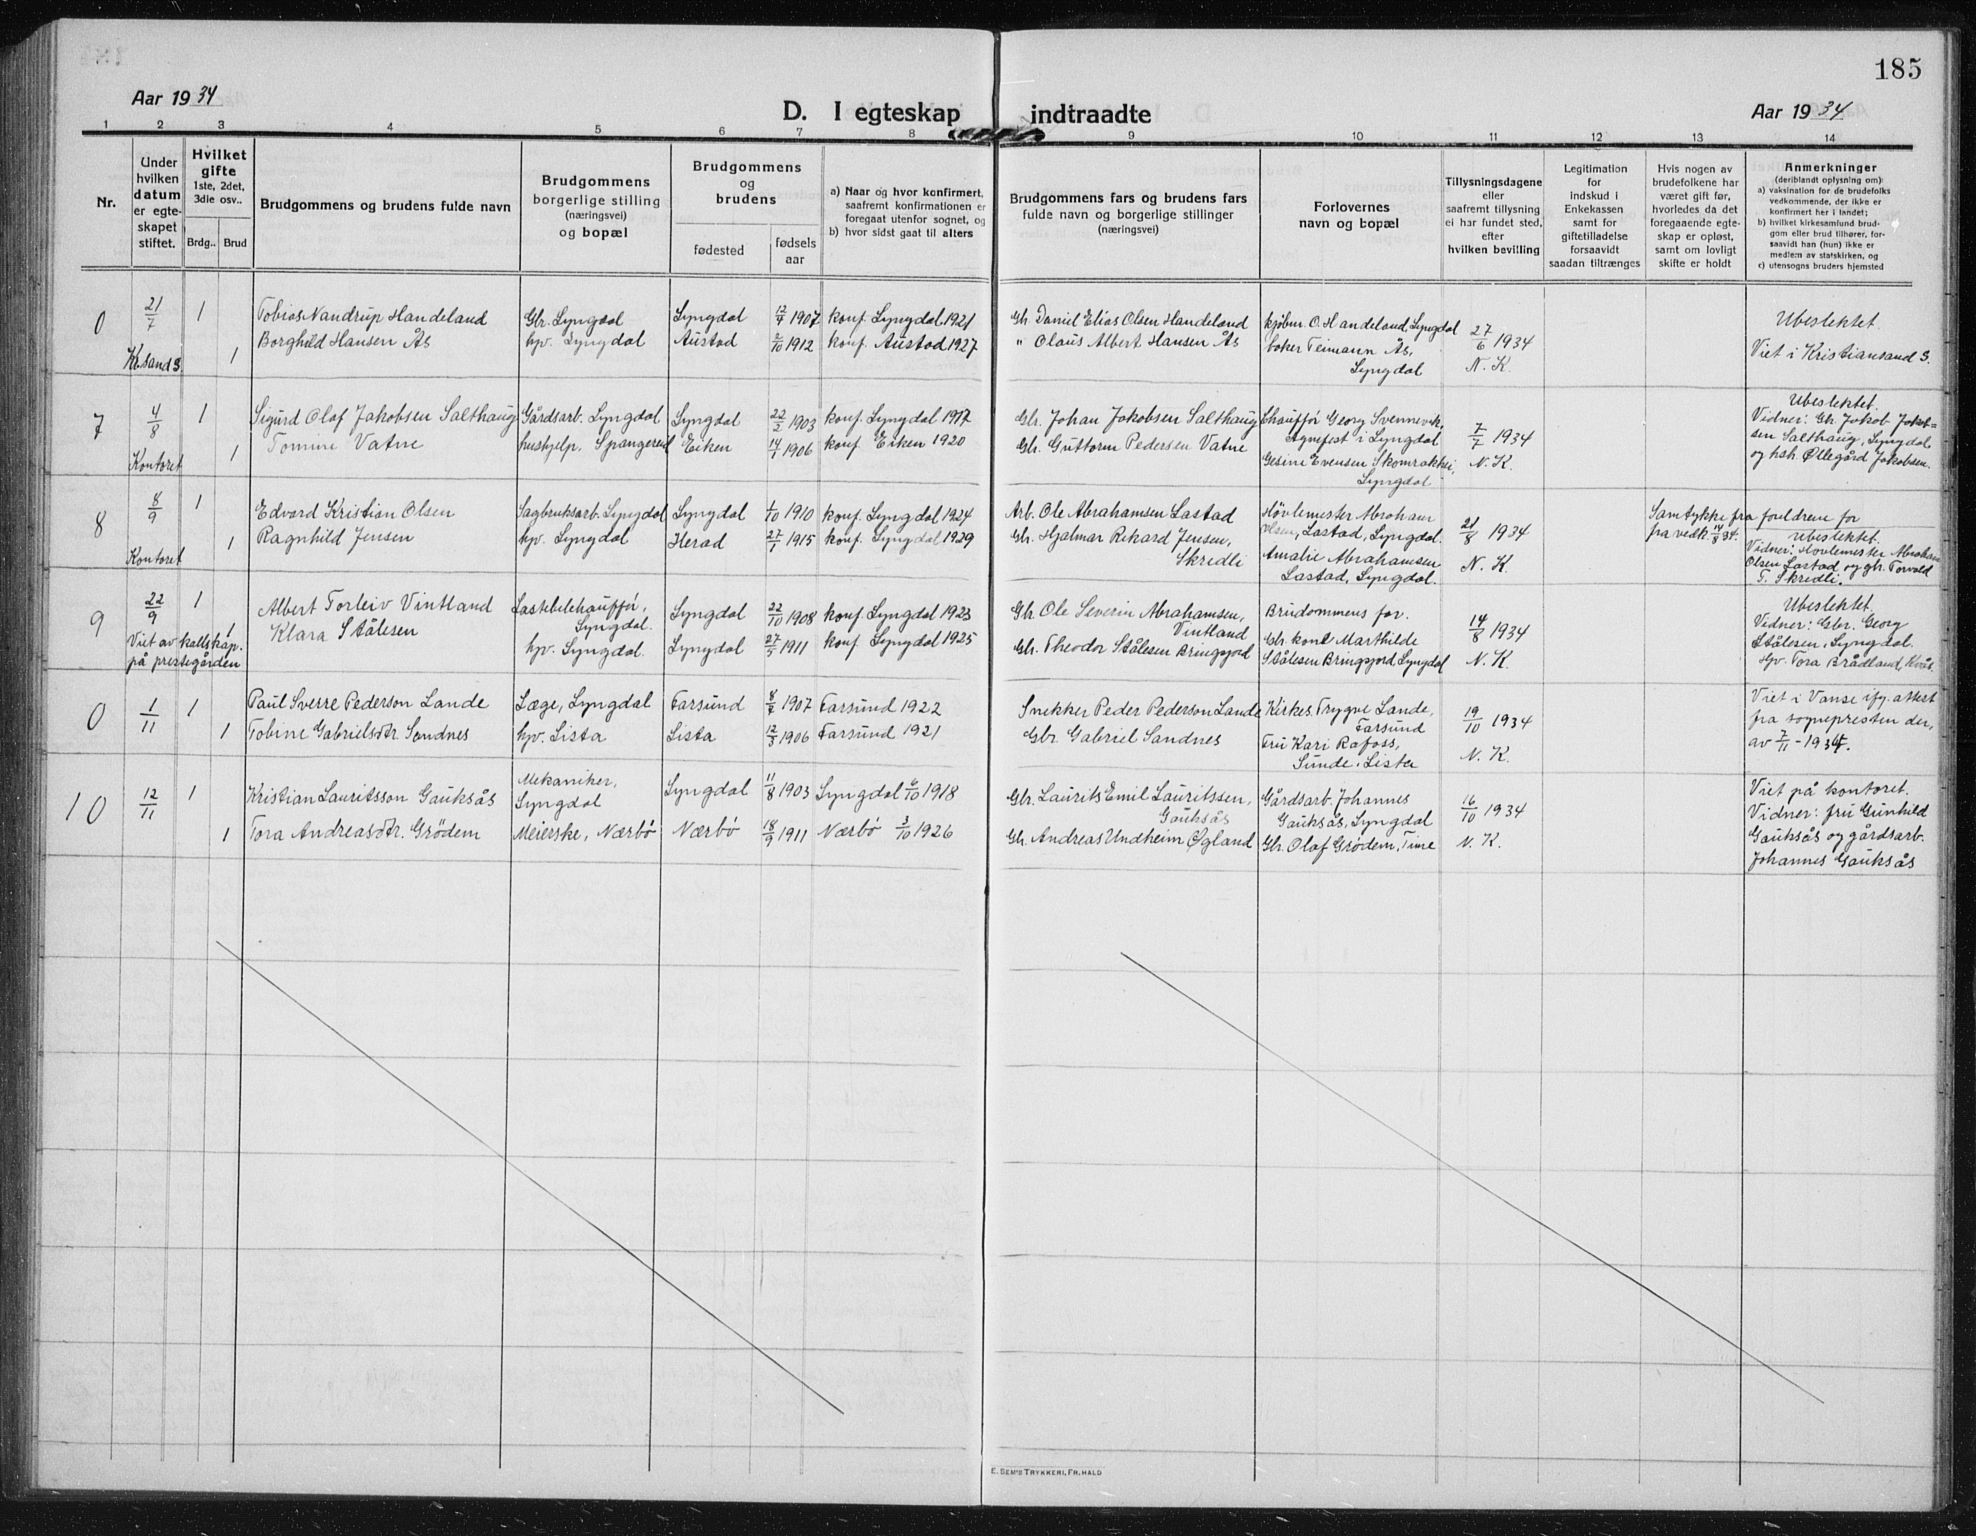 185
Aar 1934
D. I egteskap indtraadte
Aar 1934
1 2 3 4 5 6 7 8 9 10 11 12 13 14
Nr.
Under hvilken datum er egte-skapet stiftet.
Hvilket gifte 1ste, 2det, 3die osv..
Brdg.. Brud
Brudgommens og brudens fulde navn
Brudgommens borgerlige stilling (næringsvei) og bopæl
Brudgommens og brudens
fødested
fødsels aar
a) Naar og hvor konfirmert, saafremt konfirmationen er foregaat utenfor sognet, og
b) hvor sidst gaat til alters
Brudgommens fars og brudens fars fulde navn og borgerlige stillinger (næringsvei)
Forlovernes navn og bopæl
Tillysningsdagene eller saafremt tillysning ei har fundet sted, efter hvilken bevilling
Legitimation for indskud i Enkekassen samt for giftetilladelse forsaavidt saadan tiltrænges
Hvis nogen av brudefolkene har været gift før, hvorledes da det foregaaende egte-skap er opløst, samt om lovligt skifte er holdt
Anmerkninger
(deriblandt oplysning om)
a) vaksination for de brudefolks vedkommende, der ikke er konfirmert her i landet;
b) hvilket kirkesamfund brud-gom eller brud tilhører, for-saavidt han (hun) ikke er medlem av statskirken, og
c) utensogns bruders hjemsted
0 21/7 1 Tobias Nandrup Handeland Gbr. Lyngdal Lyngdal 12/4 1907 konf. Lyngdal 1921 Gb. Daniel Elias Olsen Handeland kjøbm. O. Handeland, Lyngdal 27/6 1934 Ubeslektet
Kr.sand S. 1 Borghild Hansen Ås hv. Lyngdal Austad 2/10 1912 konf. Austad 1927 " Olaus Albert Hansen Ås baker Teimann Ås, Lyngdal N. K. Viet i Kristiansand S.
7 4/8 1 Sigurd Olaf Jakobsen Salthaug Gårdsarb. Lyngdal Lyngdal 22/2 1903 konf. Lyngdal 1917 Gbr. Johan Jakobsen Salthaug Chauffør Georg Svennevik, Agnefest i Lyngdal 7/7 1934 Ubeslektet.
Kontoret 1 Tomine Vatne hushjelp. Spangereid Eiken 14/1 1906 konf. Eiken 1920 Gbr. Guttorm Pedersen Vatne Gesine Evensen Skomrakhei, Lyngdal N. K. Vidner: Gbr. Jakob Jakob-
sen Salthaug, Lyngdal
og hsh. Øllegård Jakobsen.
8 8/9 1 Edvard Kristian Olsen Sagbruksarb. Lyngdal Lyngdal 1/10 1910 konf. Lyngdal 1924 Arb. Ole Abrahamsen Lastad Høvlemester Abraham Olsen, Lastad, Lyngdal. 21/8 1934 Samtykke fra foreldrene for
Kontoret 1 Ragnhild Jensen hv. Lyngdal Herad 27/1 1915 konf. Lyngdal 1929 Gbr. Hjalmar Rikard Jensen, Skredli Amalie Abrahamsen Lastad, Lyngdal. N. K. fra vedk. 14/8 34. Ubeslektet.
Vidner: Høvlemester Abraham
Olsen Lastad og gbr. Torvald
T. Skredli.
9 22/9 1 Albert Torleiv Vintland Lastebilchauffør, Lyngdal. Lyngdal 22/10 1908 konf. Lyngdal 1923 Gbr. Ole Severin Abrahamsen, Vintland Brudommens far. 14/8 1934 Ubeslektet,
Viet av kallskap. på prestegården 1 Klara Stålesen hv. Lyngdal. Lyngdal 27/5 1911 konf. Lyngdal 1925 Gbr. Theodor Stålesen Bringsjord Gbr. kone Marthilde Stålesen Bringsjord, Lyngdal N. K. Vidner: Gbr. Georg
Stålesen, Lyngdal.
Hv. Tora Brådland, Kvås.
0 1/11 1 Paul Sverre Pederson Lande Læge, Lyngdal Farsund 8/7 1907 Farsund 1922 Snekker Peder Pederson Lande Kirkes. Trygve Lande, Farsund 19/10 1934 Viet i Vanse ifg. attest
1 Tobine Gabrielsdtr. Sandnes hv. Lista Lista 12/3 1906 Farsund 1921 Gbr. Gabriel Sandnes Fru Kari Rafoss, Sunde i Lista N. K. fra sognepresten der,
av 7/11 - 1934.
10 12/11 1 Kristian Lauritsson Gauksås Mekaniker, Lyngdal Lyngdal 11/8 1903 Lyngdal 6/10 1918 Gbr. Laurits Emil Lauritssen, Gauksås Gårdsarb. Johannes Gauksås, Lyngdal 16/10 1934 Viet på kontoret.
1 Tora Andreasdtr. Grödem Meierske, Nærbø Nærbø 18/9 1911 Nærbø 3/10 1926 Gbr. Andreas Undheim Øgland Gbr. Olaf Grødem, Time N. K. Vidner: fru Gunhild
Gauksås og gårdsarb.
Johannes Gauksås
E. SEM'S TRYKKERI, FR.HALD